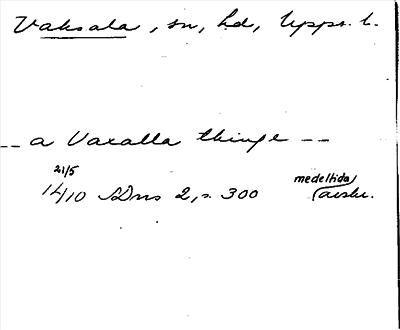 Vaksala, sn, hd, Upps. l.
-- a Vaxalla thinge --
21/5
14/10 SDns 2, s. 300
medeltida
avskr.